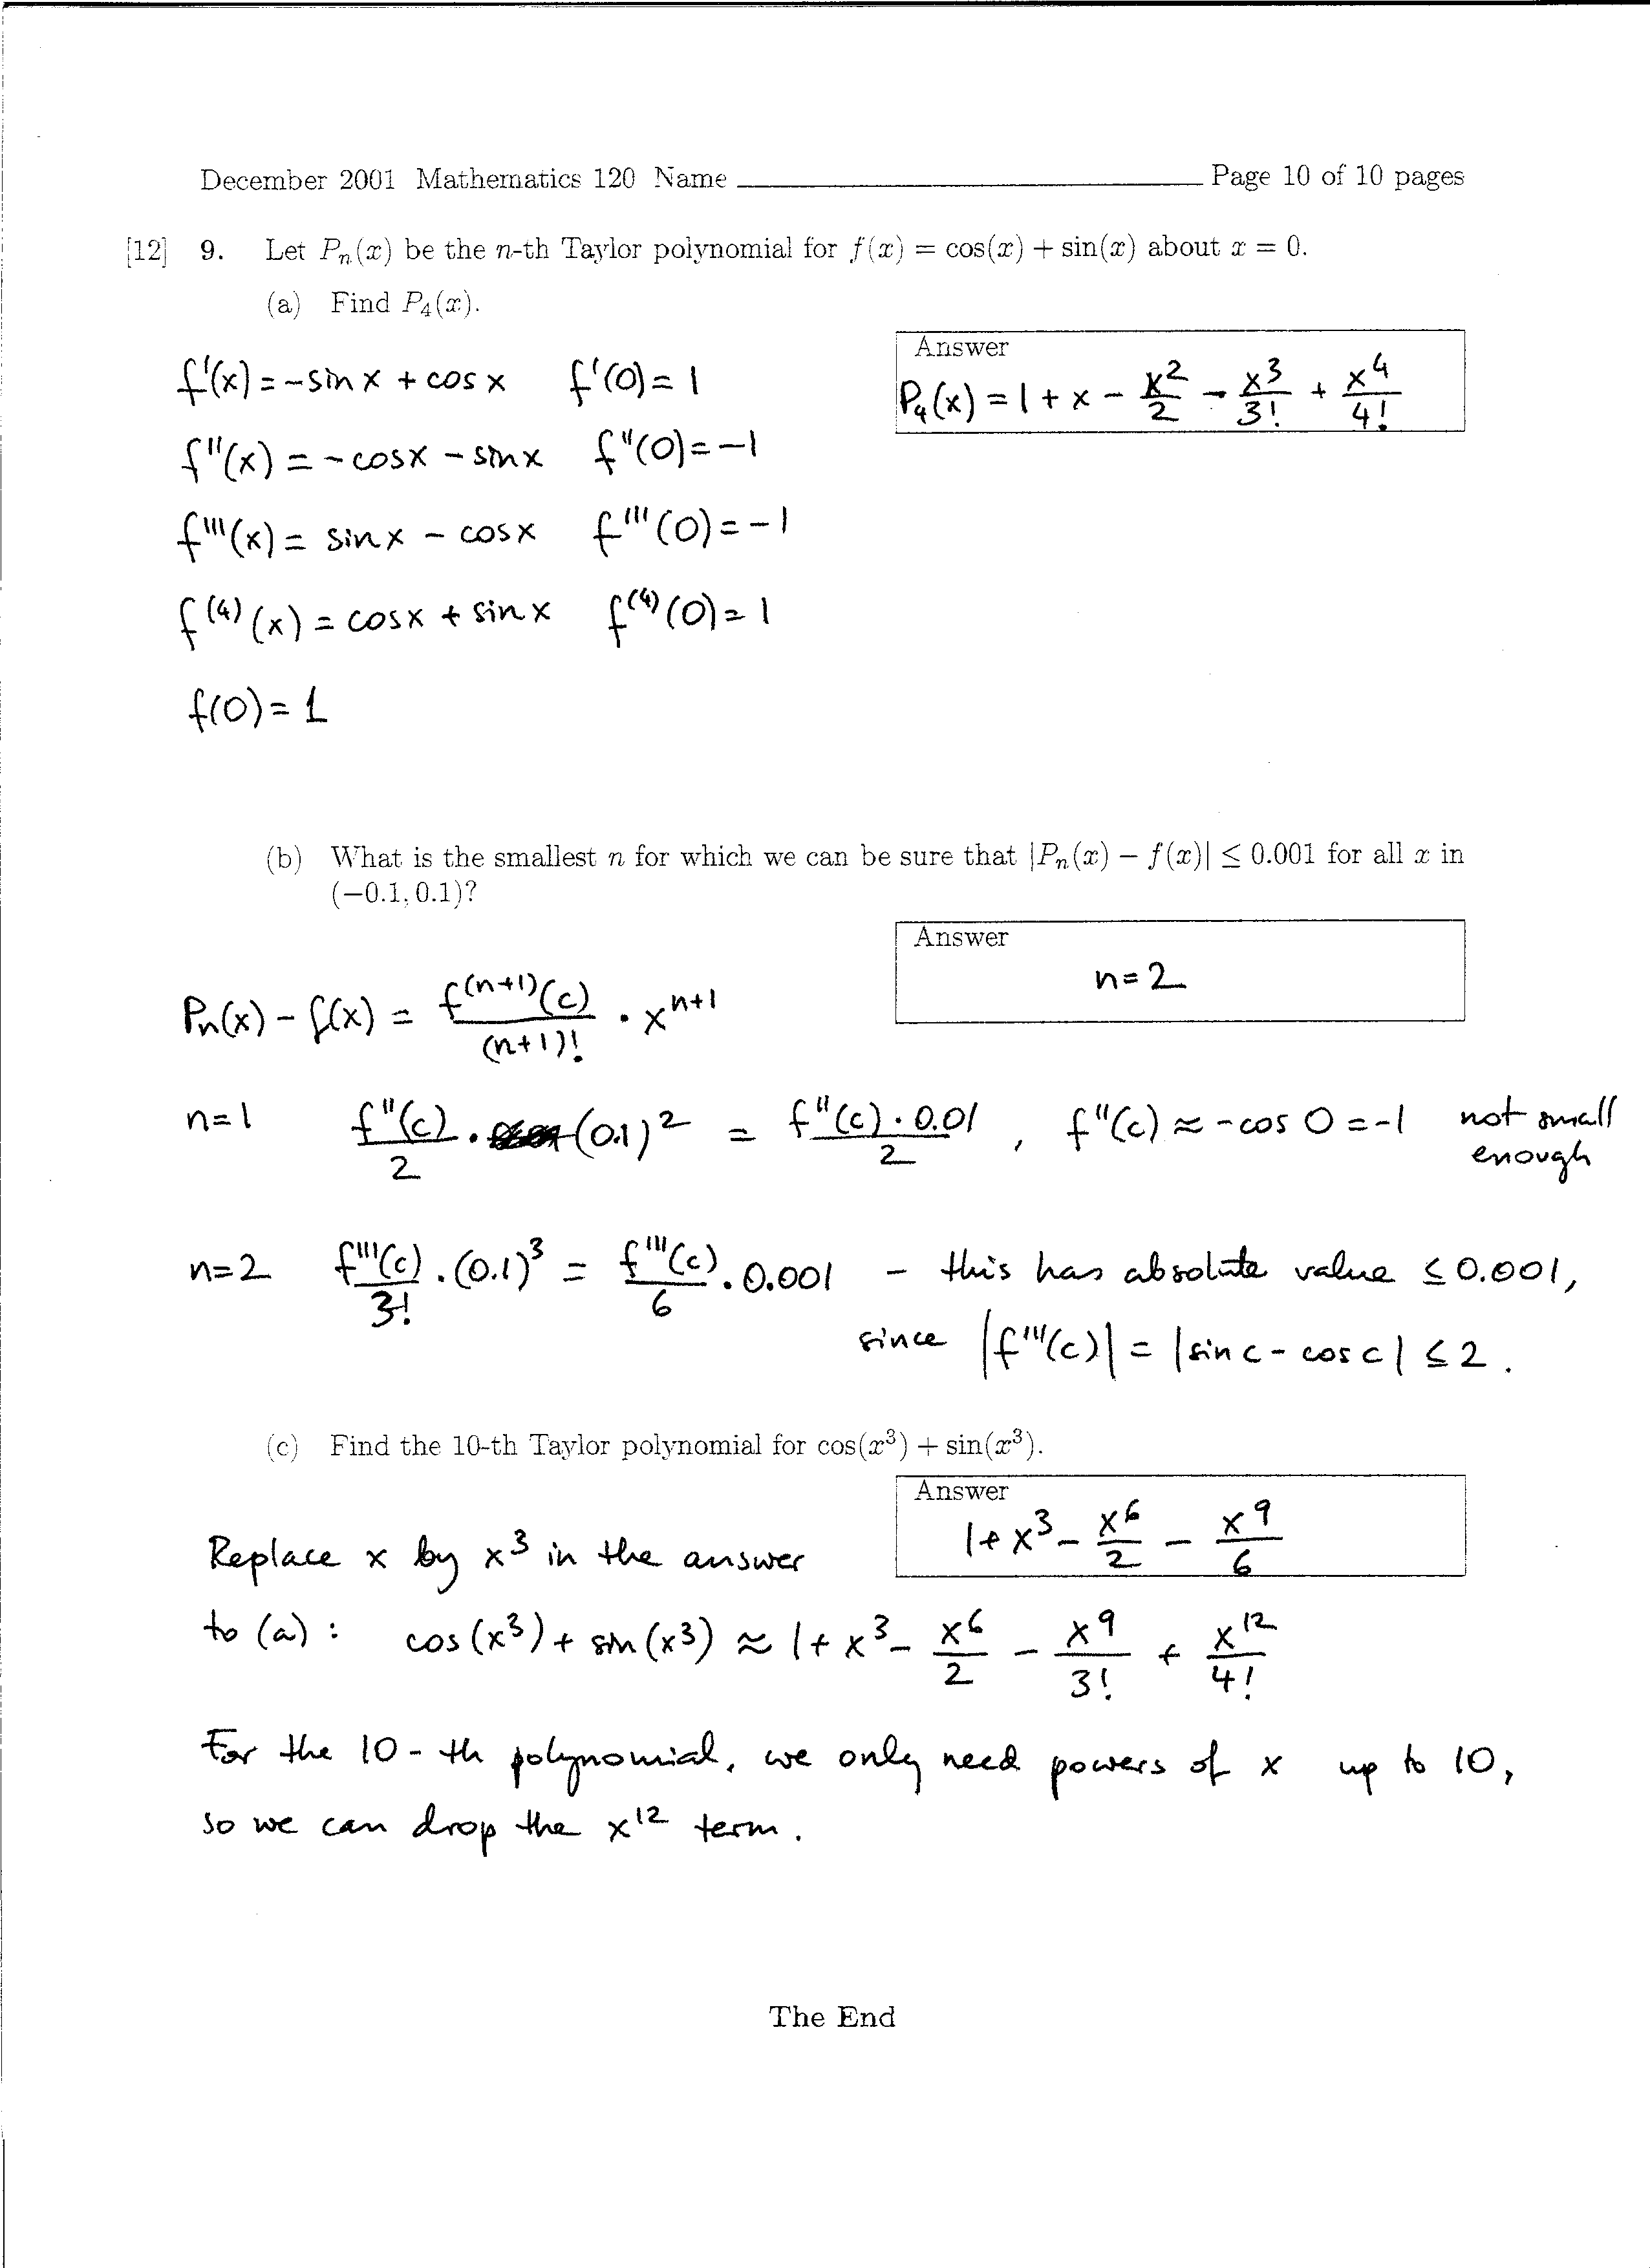 December 2001 Mathematics 120 Name ____________ Page 10 of 10 pages
[12] 9. Let Pₙ(x) be the n-th Taylor polynomial for f(x) = cos(x) + sin(x) about x = 0.
(a) Find P₄(x).
Answer
P₄(x) = 1 + x - x²/2 - x³/3! + x⁴/4!
f'(x) = -sin x + cos x f'(0) = 1
f''(x) = -cosx - sinx f''(0) = -1
f'''(x) = sinx - cosx f'''(0) = -1
f⁽⁴⁾(x) = cosx + sinx f⁽⁴⁾(0) = 1
f(0) = 1
(b) What is the smallest n for which we can be sure that |Pₙ(x) − f(x)| ≤ 0.001 for all x in
(−0.1, 0.1)?
Answer
n=2
Pₙ(x) - f(x) = f⁽ⁿ⁺¹⁾(c)/(n+1)! · xⁿ⁺¹
n=1 f''(c)/2 · (0.1)² = f''(c) · 0.01/2 , f''(c) ≈ -cos 0 = -1 not small
enough
n=2 f'''(c)/3! · (0.1)³ = f'''(c)/6 · 0.001 - this has absolute value ≤ 0.001,
since |f'''(c)| = |sin c - cos c| ≤ 2.
(c) Find the 10-th Taylor polynomial for cos(x³) + sin(x³).
Answer
1 + x³ - x⁶/2 - x⁹/6
Replace x by x³ in the answer
to (a): cos(x³) + sin(x³) ≈ 1 + x³ - x⁶/2 - x⁹/3! + x¹²/4!
For the 10-th polynomial, we only need powers of x up to 10,
so we can drop the x¹² term.
The End